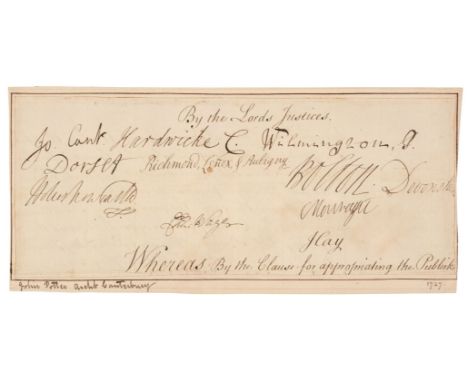 By the Lords Justices.
Jo. Cant. Hardwicke C. Wilmington P.
Dorset Richmond, Lenox & Aubigny Bolton Devonshire
Holles Newcastle Montagu
Cha. Wager Ilay
Whereas By the Clause for appropriating the Publick
John Potter Archb Canterbury 1727